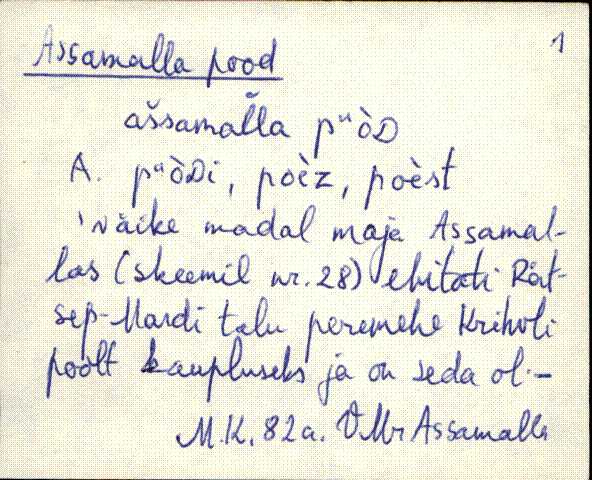 1
Assamalla pood
aššamal̆la pᵘòD
A. pᵘòDi, poèz, poèst
'väike madal maja Assamal-
las (skeemil nr. 28) ehitati Rät-
sep-Mardi talu peremehe Krihvli
poolt kaupluseks ja on seda ol.-
M.K. 82a. VMr Assamalla